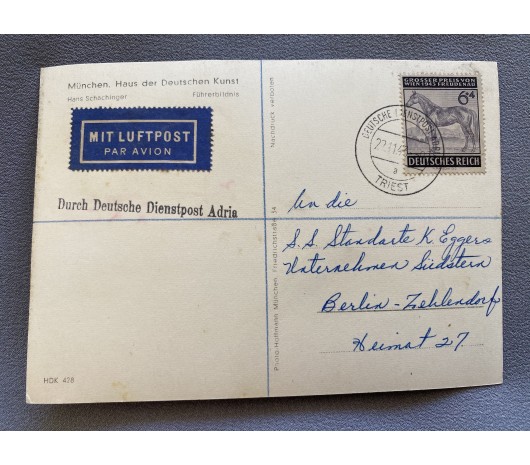 München, Haus der Deutschen Kunst
Hans Schachinger Führerbildnis
MIT LUFTPOST
PAR AVION
Durch Deutsche Dienstpost Adria
HDK 428
Nachdruck verboten
Photo-Hoffmann, München, Friedrichstraße 34
DEUTSCHE DIENSTPOST ADRIA
22.11.4
a
TRIEST
GROSSER PREIS VON
WIEN 1943 FREUDENAU
6+4
DEUTSCHES REICH
An die
S.S. Standarte K. Eggers
Unternehmen Südstern
Berlin-Zehlendorf
Heimat 27